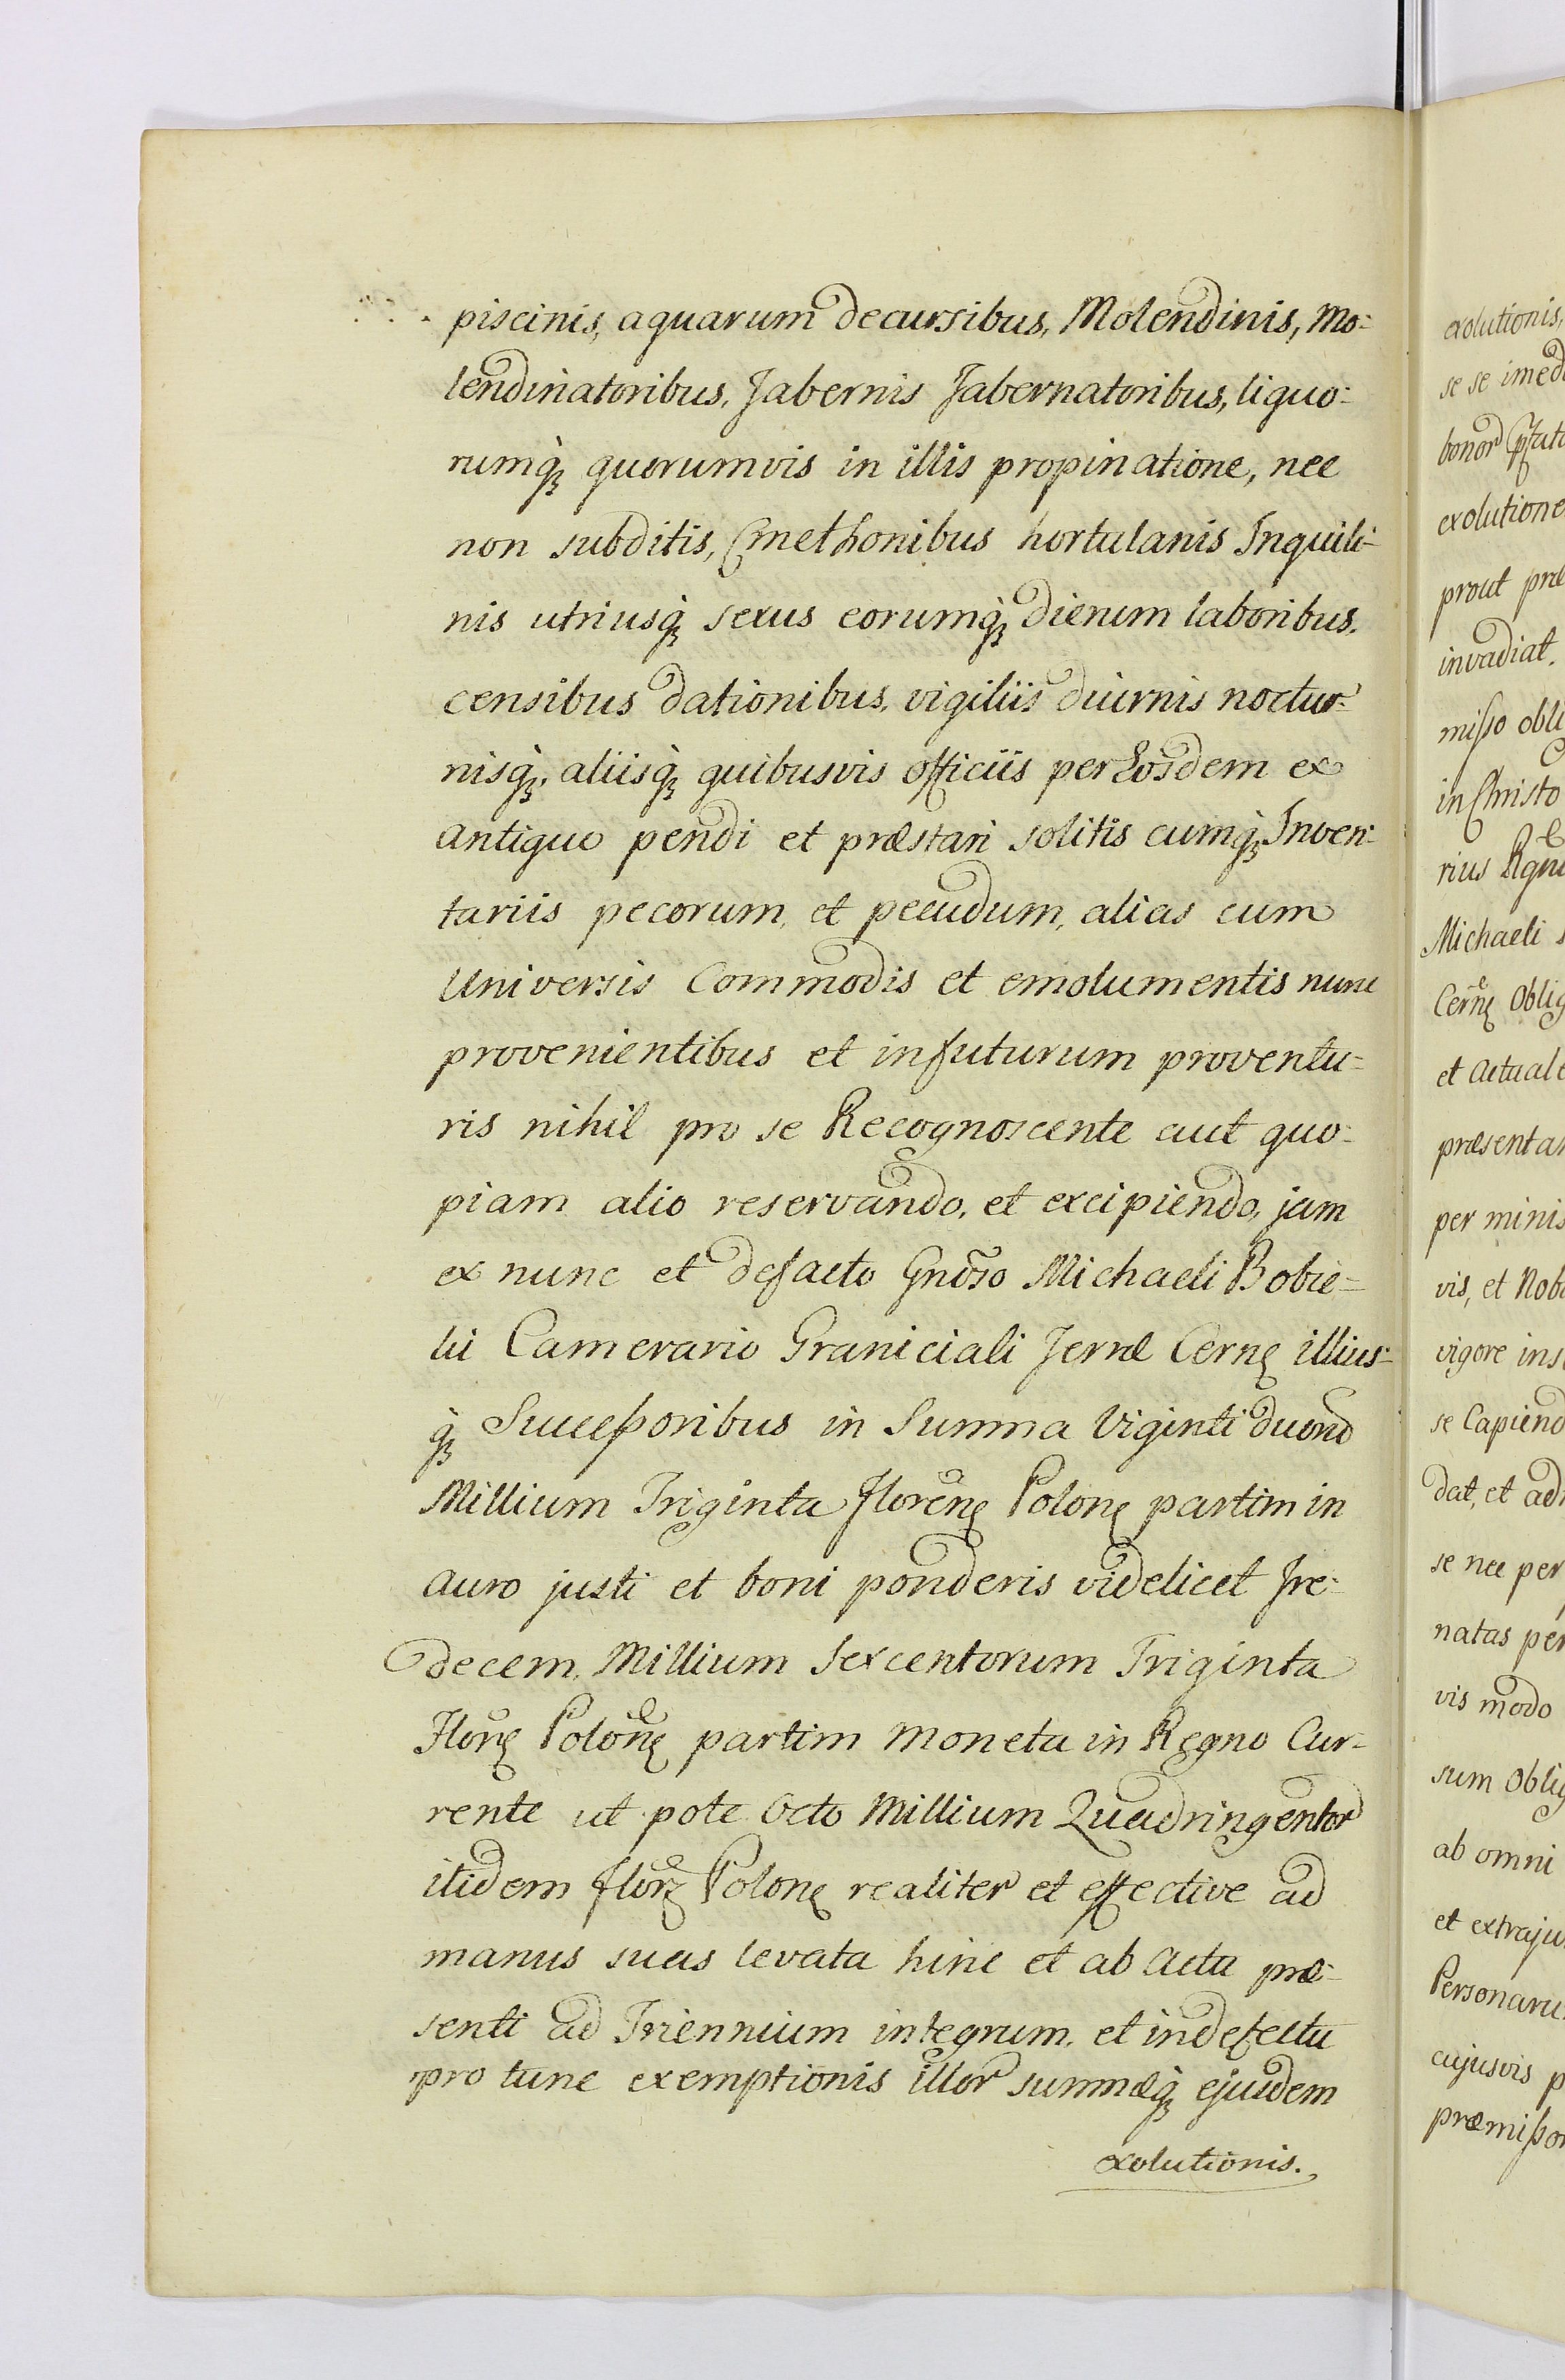 piscinis, aquarum decursibus, Molendinis, Mo=
lendinatoribus, Tabernis Tabernatoribus, liquo=
rumq́ꝫ quorumvis in illis propinatione, nec
non subditis, Cmethonibus hortulanis Inquili=
nis utriusq́ꝫ sexus eorumq́ꝫ dierum laboribus,
censibus dationibus, vigiliis diurnis noctur=
nisq́ꝫ, aliisq́ꝫ quibusvis officiis per Eosdem ex
antiquo pendi et præstari solitis cumq́ꝫ Inven=
tariis pecorum, et pecudum, alias cum
Universis Commodis et emolumentis nunc
provenientibus et in futurum proventu=
ris nihil pro se Recognoscente aut quo=
piam alio reservando, et excipiendo, jam
ex nunc et de facto Gnõso Michaeli Bobie=
lii Camerario Graniciali Terræ Cernę illius=
q́ꝫ Successoribus in Summa Viginti duoru
Millium Triginta Florenę Polonę partim in
auro justi et boni ponderis videlicet Tre=
decem Millium Sexcentorum Triginta
Florę Polonę partim moneta in Regno Cur=
rente ut pote Octo Millium Quadringentor
itidem florꝫ Polonę realiter et effective ad
manus suas levata hinc et ab Actu præ=
senti ad Triennium integrum, et in defectu
pro tunc exemptionis illor summæq́ꝫ ejusdem
exolutionis.
exolutionis,
se se imed
bonor
exolutione
prout præ
invadiat,
misso obli
in Christo
rius Rgni
Michaeli
Cernę Oblig
et actuale
præsentar
per minis
vis, et Nob
vigore ins
se Capiend
dat, et ad
se nec per
natas per
vis modo
sum Oblig
ab omni
et extraju
Personaru
cujusvis p
præmissor